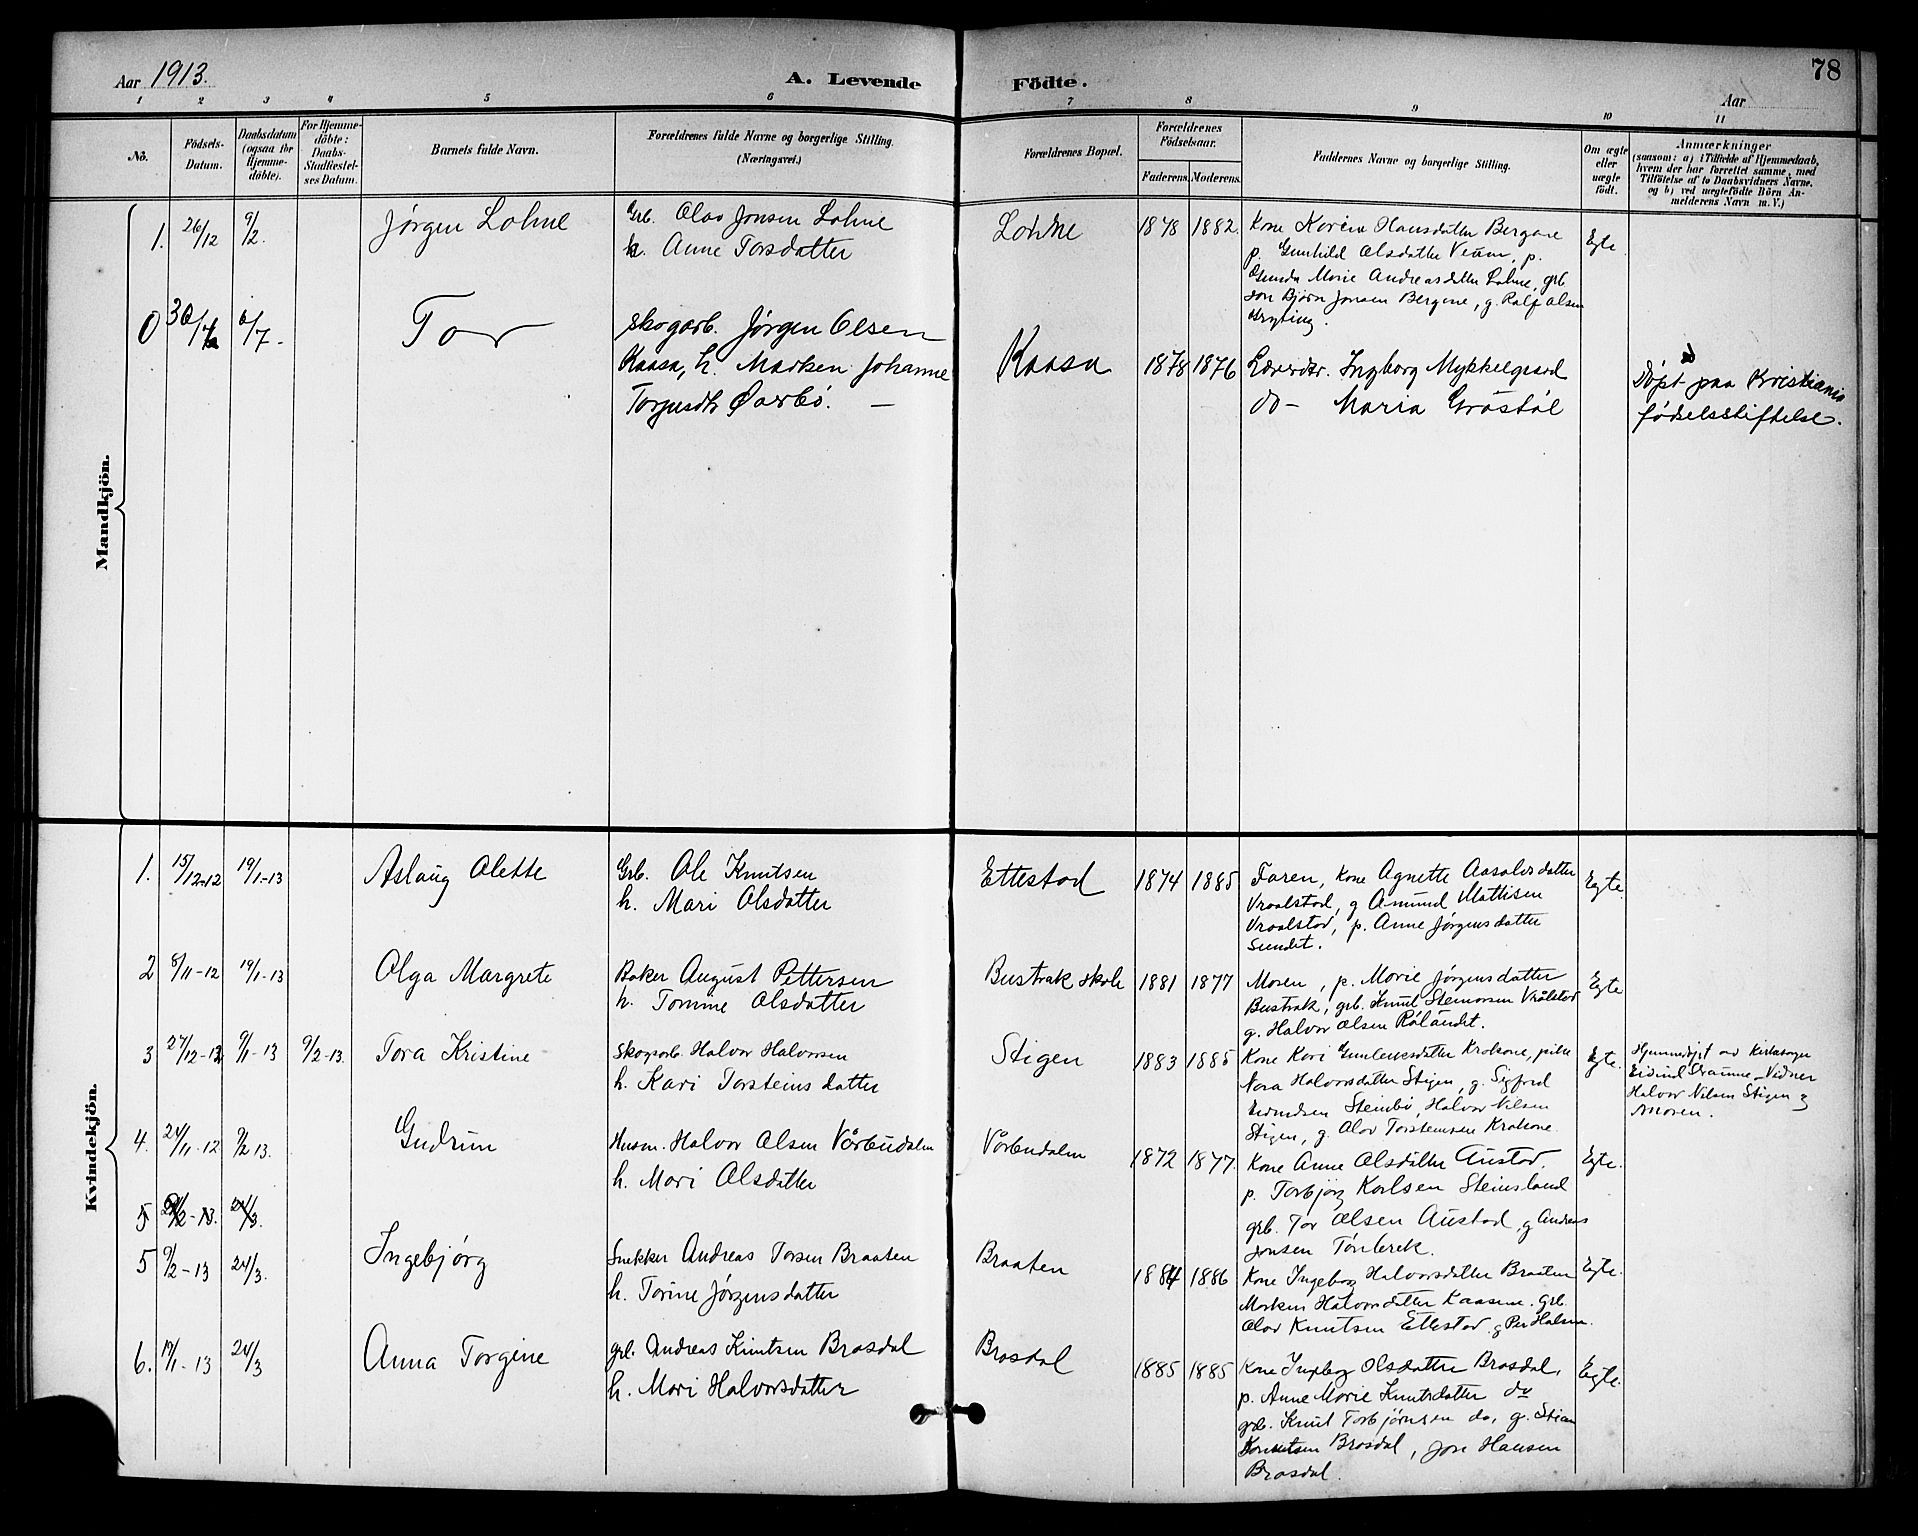 Aar 1913.
A. Levende Födte.
78
Aar
1 2 3 4 5 6 7 8 9 10 11
No.
Födsels-
Datum.
Daabsdatum
(ogsaa for
Hjemme-
döbte).
For Hjemme-
döbte:
Daabs-
Stadfæstel-
ses Datum.
Barnets fulde Navn.
Forældrenes fulde Navne og borgerlige Stilling.
(Næringsvei.)
Forældrenes Bopæl.
Forældrenes
Födselsaar.
Faderens. Moderens.
Faddernes Navne og borgerlige Stilling.
Om ægte
eller
uægte
født.
Anmærkninger
(saasom: a) i Tilfælde af Hjemmedaab,
hvem der har forrettet samme, med
Tilføielse af to Daabsvidners Navne,
og b) ved uægtefødte Börn An-
melderens Navn m. V.)
Mandkjön.
1. 26/12 9/2. Jørgen Lohne
Grb. Olav Jonsen Lohne
h. Anne Torsdatter
Lohne 1878 1882.
Kone Karen Hansdatter Bergane
p. Gunhild Olsdatter Veum, p.
Gunda Marie Andreasdatter Lohne, grb
Jon Bjørn Jonsen Bergene, g. Ralf Olsen
Ægte
0 6/7. Tor
Skogarb. Jørgen Olsen
Kaasa, h. Marken Johanne
Torjusdtr Øverbö. —
Kaasa 1878 1876
Lærerdtr. Ingborg Mykkelgaard
do - Maria Gråstöl
Döpt paa Kristiania
fødselsstiftelse.
Kvindekjön.
1. 15/12-12 19/1-13 Aslaug Alette
Grb. Ole Knutsen
h. Mari Olsdatter
Ettestad 1874 1885
Faren, Kone Agnette Aasalvsdatter
Vraalstad, g Amund Mathisen
Vraalstad, p. Anne Jørgensdatter
Sundet.
Egte.
2 8/11-12 19/1-13 Olga Margrete
Baker August Pettersen
h. Tomine Olsdatter
Bustrak skole 1881 1877
Moren, p. Marie Jørgensdatter
Bustrak, grb. Knut Steinarsen Vrålstad
g. Halvor Olsen Rólandet.
Egte
3 27/12-12 9/1-13 9/2-13. Tora Kristine
Skogsarb. Halvor Halvorsen
h. Kari Torsteinsdatter
Stigen 1883 1885
Kone Kari Gunleiksdatter Krokane, pike
Nora Halvorsdatter Stigen, g. Sigfred
Eivindsen Steinbö, Halvor Nilsen
Stigen, g. Olav Torsteinsen Krokane.
Egte.
Hjemmedöpt av Kirkesanger
Eivind Straume - Vidner
Halvor Nilsen Stigen og
Moren.
4. 24/11-12 9/2 13. Gudrun
Husm. Halvor Olsen Vårbudalen
h. Mari Olsdatter
Vårbudalen 1872 1877.
Kone Anne Olsdatter Austad.
p. Torbjörg Karlsen Steinsland
grb. Tor Olsen Austad, g Andreas
Jonsen Tönbrek.
Egte.
5 2-13. 24/3.
5 9/2-13 24/3. Ingebjørg
Snekker Andreas Torsen Braaten
h. Torine Jørgensdatter
Braaten 1884 1886
Kone Ingeborg Halvorsdatter Braaten
Marken Halvorsdatter Kaasene. Grb.
Olav Knutsen Ettestad. g Per Halsen.
Egte.
6. 19/1-13 24/3 Anna Torgine
grb. Andreas Knutsen Brasdal
h. Mari Halvorsdatter
Brasdal 1885 1885
Kone Ingeborg Olsdatter Brasdal.
p. Anne Marie Knutsdatter do
grb. Knut Torbjørnsen do, g. Stian
Knutsen Brasdal, Jon Hansen
Brasdal.
Egte.